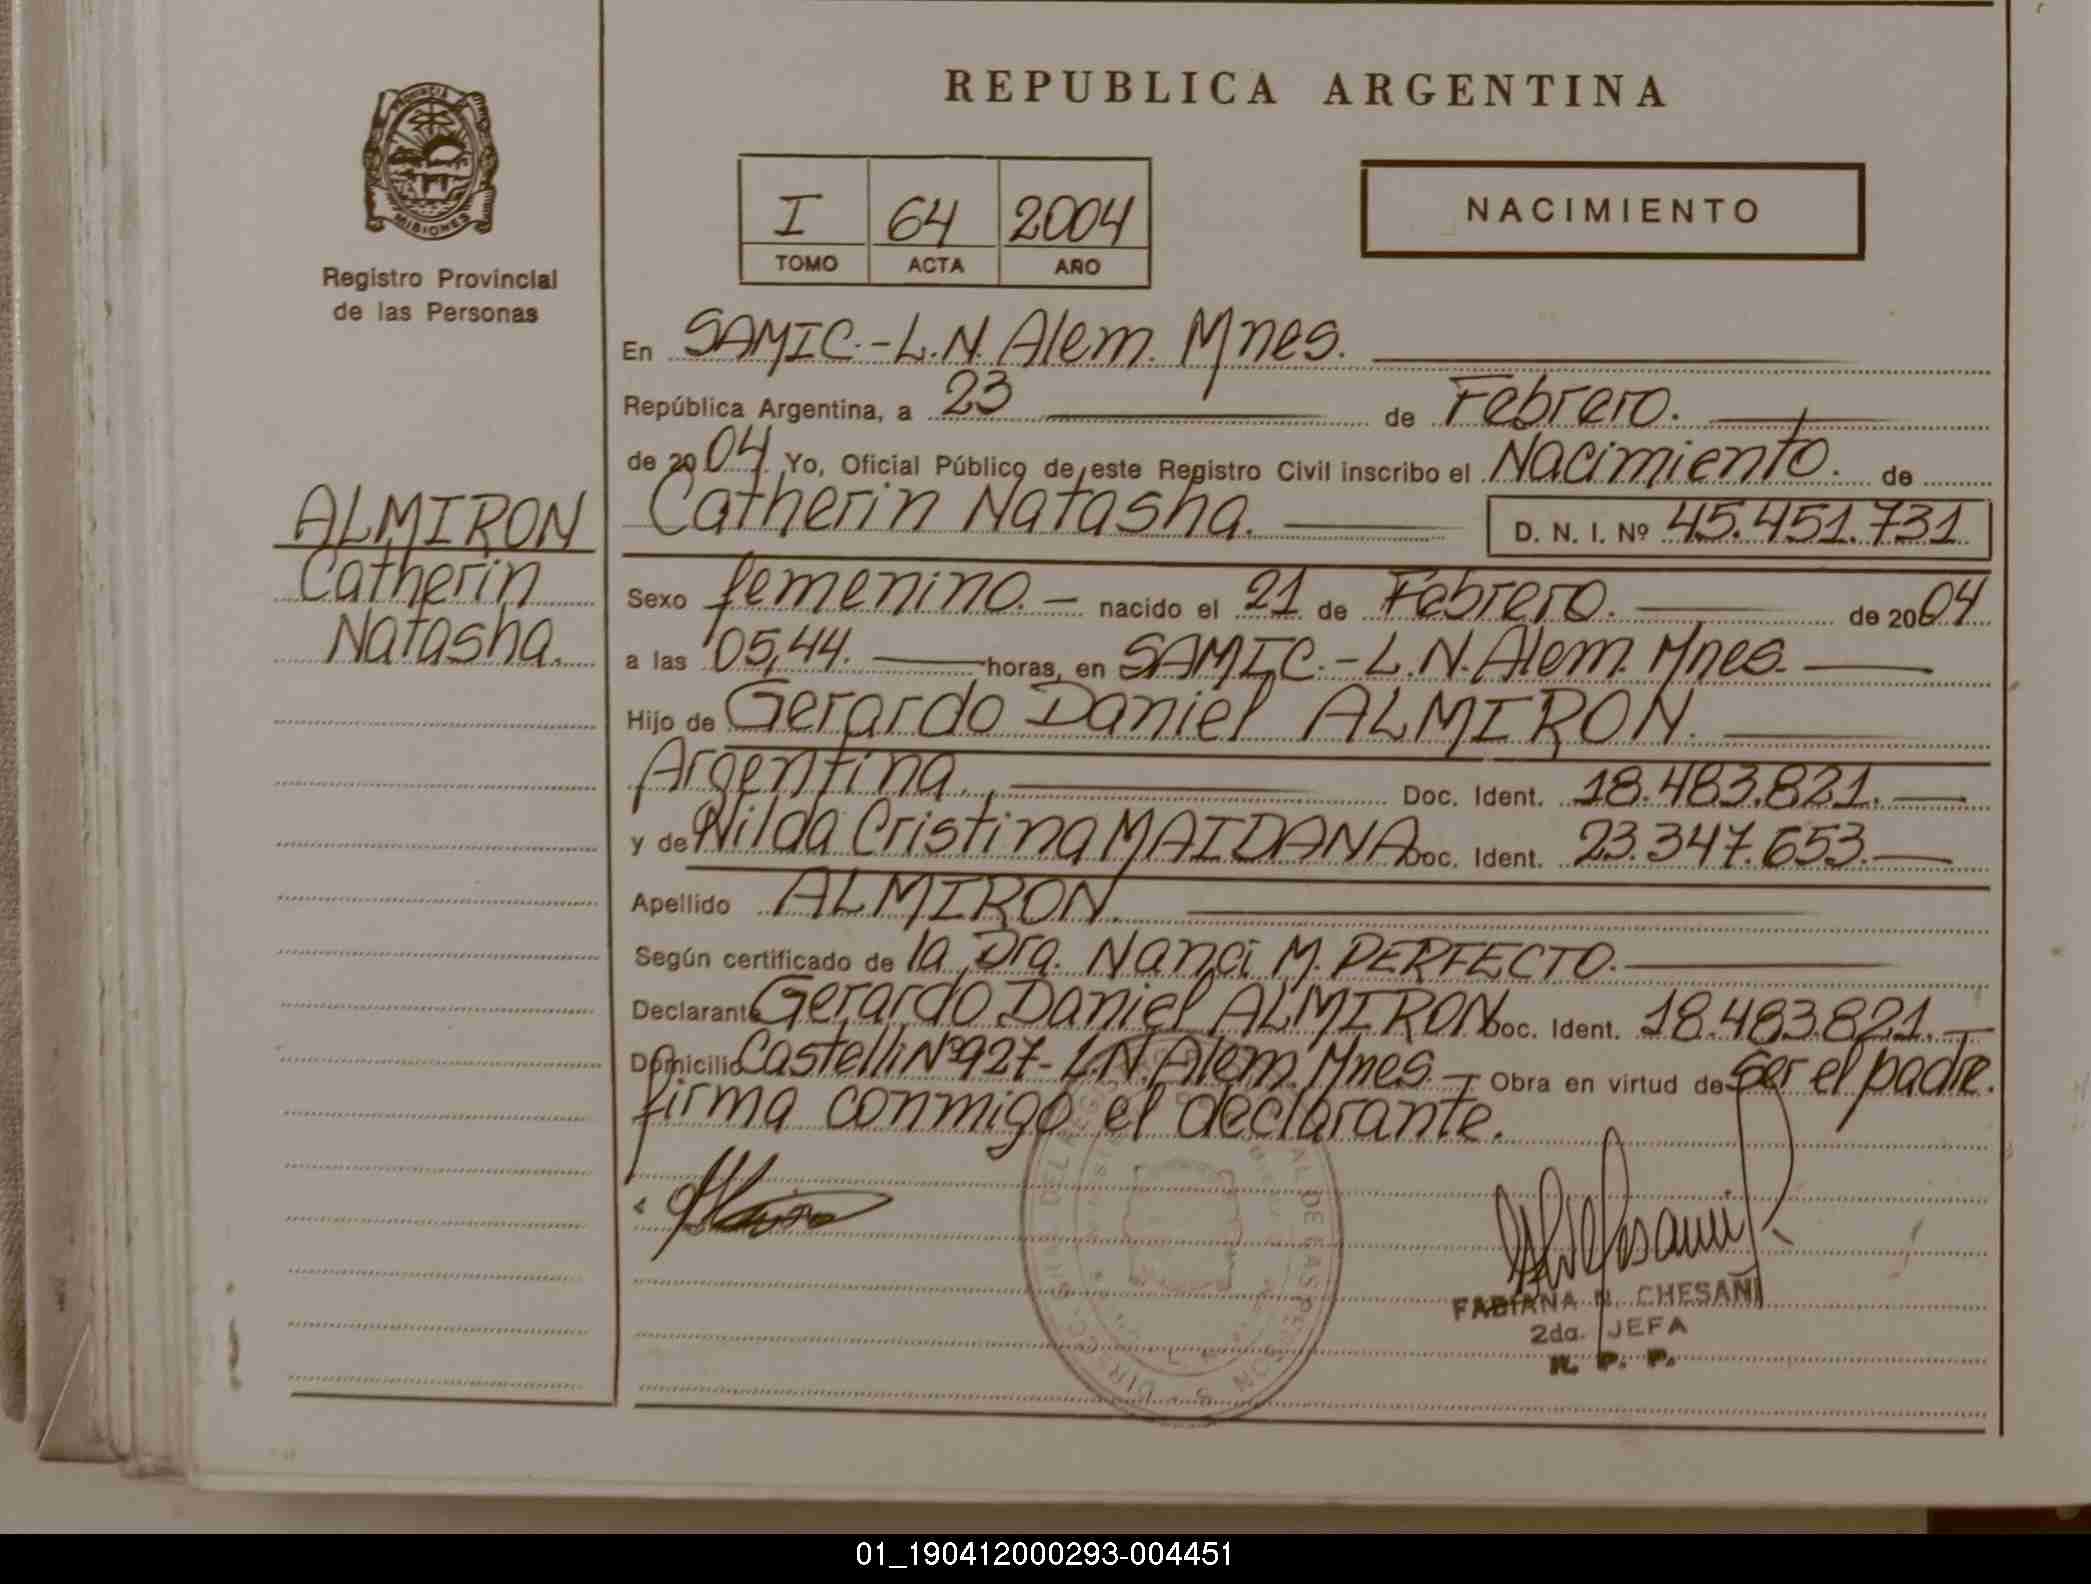 REPUBLICA ARGENTINA
PROVINCIA
MISIONES
Registro Provincial
de las Personas
I 64 2004
TOMO ACTA AÑO
NACIMIENTO
En SAMIC.-L.N. Alem. Mnes.
República Argentina, a 23 de Febrero.
de 2004 Yo, Oficial Público de este Registro Civil inscribo el Nacimiento. de
Catherin Natasha. D. N. I. Nº 45.451.731
ALMIRON
Catherin
Natasha.
Sexo femenino. nacido el 21 de Febrero. de 2004
a las 05,44. horas, en SAMIC.-L.N. Alem. Mnes.
Hijo de Gerardo Daniel ALMIRON.
Argentina. Doc. Ident. 18.483.821.
y de Nilda Cristina MAIDANA Doc. Ident. 23.347.653.
Apellido ALMIRON.
Según certificado de la Dra. Nanci M. PERFECTO.
Declarante Gerardo Daniel ALMIRON Doc. Ident. 18.483.821.
Domicilio Castelli Nº 927- L.N. Alem. Mnes. Obra en virtud de ser el padre.
firma conmigo el declarante.
FABIANA N. CHESAÑI
2da. JEFA
R. P. P.
01_190412000293-004451